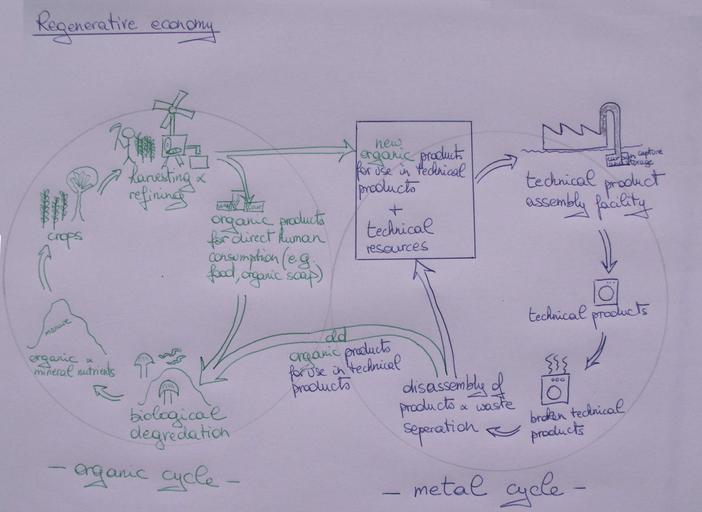 Regenerative economy
harvesting &
refining
crops
manure
organic &
mineral nutrients
biological
degredation
organic products
for direct human
consumption (e.g.
food, organic soap)
new
organic product
for use in technical
products
+
technical
resources
carbon capture
and storage
technical product
assembly facility
technical products
broken technical
products
disassembly of
products & waste
seperation
old
organic products
for use in technical
products
- organic cycle -
- metal cycle -